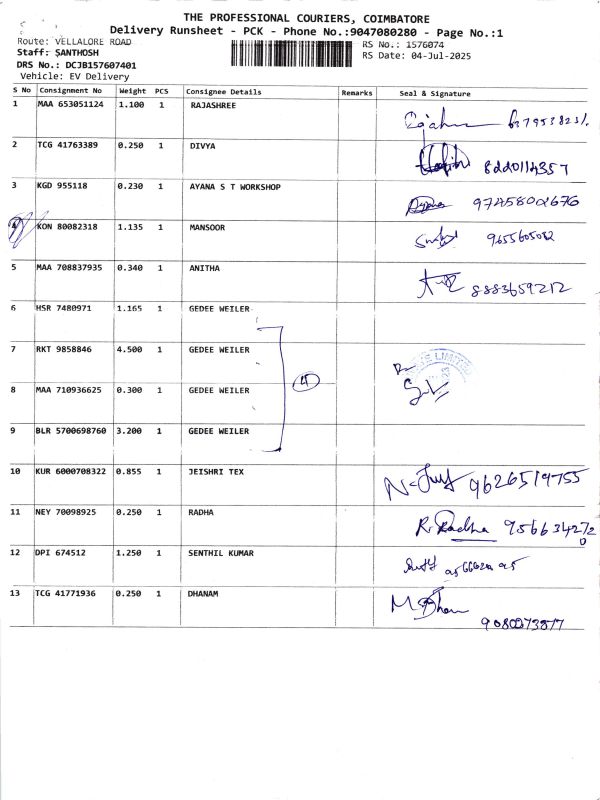 THE PROFESSIONAL COURIERS, COIMBATORE
Delivery Runsheet - PCK - Phone No.:9047080280 - Page No.:1
Route: VELLALORE ROAD
RS No.: 1576074
Staff: SANTHOSH
RS Date: 04-Jul-2025
DRS No.: DCJB157607401
Vehicle: EV Delivery
S No Consignment No Weight PCS Consignee Details Remarks Seal & Signature
1 MAA 653051124 1.100 1 RAJASHREE
2 TCG 41763389 0.250 1 DIVYA 8220114357
3 KGD 955118 0.230 1 AYANA S T WORKSHOP 9745802676
KON 80082318 1.135 1 MANSOOR 9655605082
5 MAA 708837935 0.340 1 ANITHA 8883659212
6 HSR 7480971 1.165 1 GEDEE WEILER
7 RKT 9858846 4.500 1 GEDEE WEILER
8 MAA 710936625 0.300 1 GEDEE WEILER 4
9 BLR 5700698760 3.200 1 GEDEE WEILER
10 KUR 6000708322 0.855 1 JEISHRI TEX 9626519755
11 NEY 70098925 0.250 1 RADHA R. Radha 9566342720
12 DPI 674512 1.250 1 SENTHIL KUMAR
13 TCG 41771936 0.250 1 DHANAM